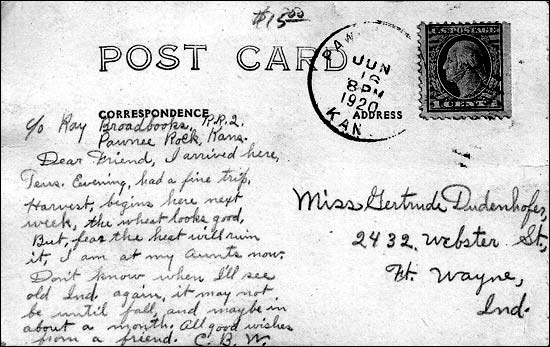 $15.00
POST CARD
PAW
JUN
16
8 PM
1920
KAN.
U.S. POSTAGE
1 CENT 1
CORRESPONDENCE
ADDRESS
c/o Ray Broadbooks, R.R.2.
Pawnee Rock, Kans.
Dear Friend, I arrived here,
Tues. Evening, had a fine trip.
Harvest, begins here next
week, the wheat looks good,
But, fear the heat will ruin
it, I am at my Aunts now.
Don't know when I'll see
old Ind. again, it may not
be until fall, and maybe in
about a month. All good wishes
from a friend. C. B. W.
Miss Gertrude Dudenhofer,
2432. Webster St,
Ft. Wayne,
Ind.